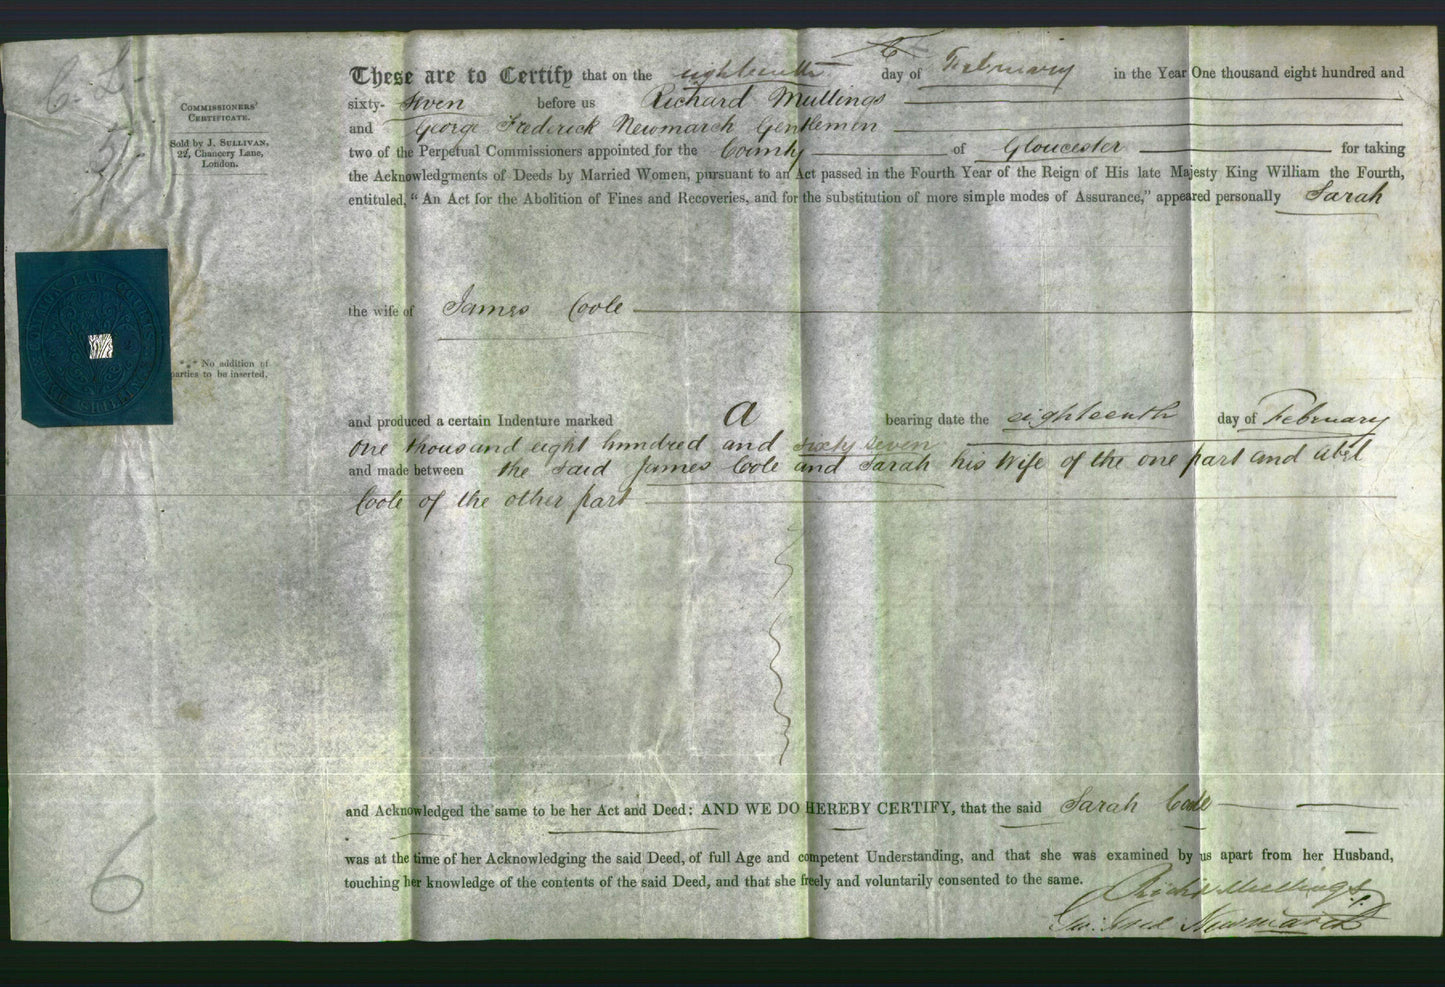 C. L.
5/-
COMMISSIONERS'
CERTIFICATE.
Sold by J. SULLIVAN,
22, Chancery Lane,
London.
COMMON LAW COURTS
SHILLINGS
*** No addition of
parties to be inserted.
These are to Certify that on the eighteenth day of February in the Year One thousand eight hundred and
sixty- seven before us Richard Mullings
and George Frederick Newmarch Gentlemen
two of the Perpetual Commissioners appointed for the County of Gloucester for taking
the Acknowledgments of Deeds by Married Women, pursuant to an Act passed in the Fourth Year of the Reign of His late Majesty King William the Fourth,
entituled, "An Act for the Abolition of Fines and Recoveries, and for the substitution of more simple modes of Assurance," appeared personally Sarah
the wife of James Coole
and produced a certain Indenture marked A bearing date the eighteenth day of February
one thousand eight hundred and sixty seven
and made between the said James Coole and Sarah his Wife of the one part and Abel
Coole of the other part
and Acknowledged the same to be her Act and Deed: AND WE DO HEREBY CERTIFY, that the said Sarah Coole
was at the time of her Acknowledging the said Deed, of full Age and competent Understanding, and that she was examined by us apart from her Husband,
touching her knowledge of the contents of the said Deed, and that she freely and voluntarily consented to the same.
Richd Mullings
Geo: Fred Newmarch
6